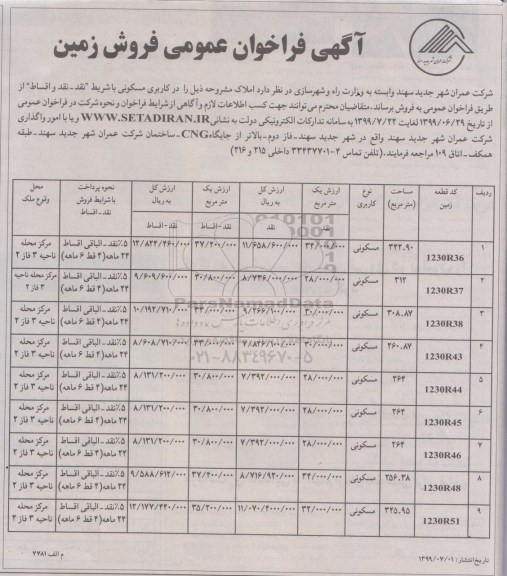 آگهی فراخوان عمومی فروش زمین
شرکت عمران شهر جدید سهند وابسته به وزارت راه و شهرسازی در نظر دارد املاک مشروحه ذیل را در کاربری مسکونی با شرایط "نقد ـ نقد و اقساط" از
طریق فراخوان عمومی به فروش برساند. متقاضیان محترم می توانند جهت کسب اطلاعات لازم و آگاهی از شرایط فراخوان و نحوه شرکت در فراخوان عمومی
از تاریخ ۱۳۹۹/۰۶/۲۹ لغایت ۱۳۹۹/۷/۲۲ به سامانه تدارکات الکترونیکی دولت به نشانی WWW.SETADIRAN.IR و یا با امور واگذاری
شرکت عمران شهر جدید سهند واقع در شهر جدید سهند ـ فاز دوم ـ بالاتر از جایگاه CNG ـ ساختمان شرکت عمران شهر جدید سهند ـ طبقه
همکف ـ اتاق ۱۰۹ مراجعه فرمایند. (تلفن تماس ۴-۳۳۴۳۷۷۰۱ داخلی ۲۱۵ و ۲۱۶)
ردیف کد قطعه زمین مساحت (متر مربع) نوع کاربری ارزش یک متر مربع نقد ارزش کل به ریال نقد ارزش یک متر مربع نقد ـ اقساط ارزش کل به ریال نقد ـ اقساط نحوه پرداخت با شرایط فروش نقد ـ اقساط محل وقوع ملک
۱ 1230R36 ۳۴۲.۹۰ مسکونی ۳۴/۰۰۰/۰۰۰ ۱۱/۶۵۸/۶۰۰/۰۰۰ ۳۷/۴۰۰/۰۰۰ ۱۲/۸۲۴/۴۶۰/۰۰۰ ۵٪ نقد ـ الباقی اقساط ۲۴ ماهه (۴ قسط ۶ ماهه) مرکز محله ناحیه ۳ فاز ۲
۲ 1230R37 ۳۱۲ مسکونی ۲۸/۰۰۰/۰۰۰ ۸/۷۳۶/۰۰۰/۰۰۰ ۳۰/۸۰۰/۰۰۰ ۹/۶۰۹/۶۰۰/۰۰۰ ۵٪ نقد ـ الباقی اقساط ۲۴ ماهه (۴ قسط ۶ ماهه) مرکز محله ناحیه ۳ فاز ۲
۳ 1230R38 ۳۰۸.۸۷ مسکونی ۳۰/۰۰۰/۰۰۰ ۹/۲۶۶/۱۰۰/۰۰۰ ۳۳/۰۰۰/۰۰۰ ۱۰/۱۹۲/۷۱۰/۰۰۰ ۵٪ نقد ـ الباقی اقساط ۲۴ ماهه (۴ قسط ۶ ماهه) مرکز محله ناحیه ۳ فاز ۲
۴ 1230R43 ۲۶۰.۸۷ مسکونی ۳۰/۰۰۰/۰۰۰ ۷/۸۲۶/۱۰۰/۰۰۰ ۳۳/۰۰۰/۰۰۰ ۸/۶۰۸/۷۱۰/۰۰۰ ۵٪ نقد ـ الباقی اقساط ۲۴ ماهه (۴ قسط ۶ ماهه) مرکز محله ناحیه ۳ فاز ۲
۵ 1230R44 ۲۶۴ مسکونی ۲۸/۰۰۰/۰۰۰ ۷/۳۹۲/۰۰۰/۰۰۰ ۳۰/۸۰۰/۰۰۰ ۸/۱۳۱/۲۰۰/۰۰۰ ۵٪ نقد ـ الباقی اقساط ۲۴ ماهه (۴ قسط ۶ ماهه) مرکز محله ناحیه ۳ فاز ۲
۶ 1230R45 ۲۶۴ مسکونی ۲۸/۰۰۰/۰۰۰ ۷/۳۹۲/۰۰۰/۰۰۰ ۳۰/۸۰۰/۰۰۰ ۸/۱۳۱/۲۰۰/۰۰۰ ۵٪ نقد ـ الباقی اقساط ۲۴ ماهه (۴ قسط ۶ ماهه) مرکز محله ناحیه ۳ فاز ۲
۷ 1230R46 ۲۶۴ مسکونی ۲۸/۰۰۰/۰۰۰ ۷/۳۹۲/۰۰۰/۰۰۰ ۳۰/۸۰۰/۰۰۰ ۸/۱۳۱/۲۰۰/۰۰۰ ۵٪ نقد ـ الباقی اقساط ۲۴ ماهه (۴ قسط ۶ ماهه) مرکز محله ناحیه ۳ فاز ۲
۸ 1230R48 ۲۵۶.۳۸ مسکونی ۳۴/۰۰۰/۰۰۰ ۸/۷۱۶/۹۲۰/۰۰۰ ۳۷/۴۰۰/۰۰۰ ۹/۵۸۸/۶۱۲/۰۰۰ ۵٪ نقد ـ الباقی اقساط ۲۴ ماهه (۴ قسط ۶ ماهه) مرکز محله ناحیه ۳ فاز ۲
۹ 1230R51 ۳۴۵.۹۵ مسکونی ۳۲/۰۰۰/۰۰۰ ۱۱/۰۷۰/۴۰۰/۰۰۰ ۳۵/۲۰۰/۰۰۰ ۱۲/۱۷۷/۴۴۰/۰۰۰ ۵٪ نقد ـ الباقی اقساط ۲۴ ماهه (۴ قسط ۶ ماهه) مرکز محله ناحیه ۳ فاز ۲
ParsNamadData
۰۲۱-۸۸۳۴۹۶۷۰-۵
تاریخ انتشار: ۱۳۹۹/۰۷/۰۱
م الف ۲۷۸۱